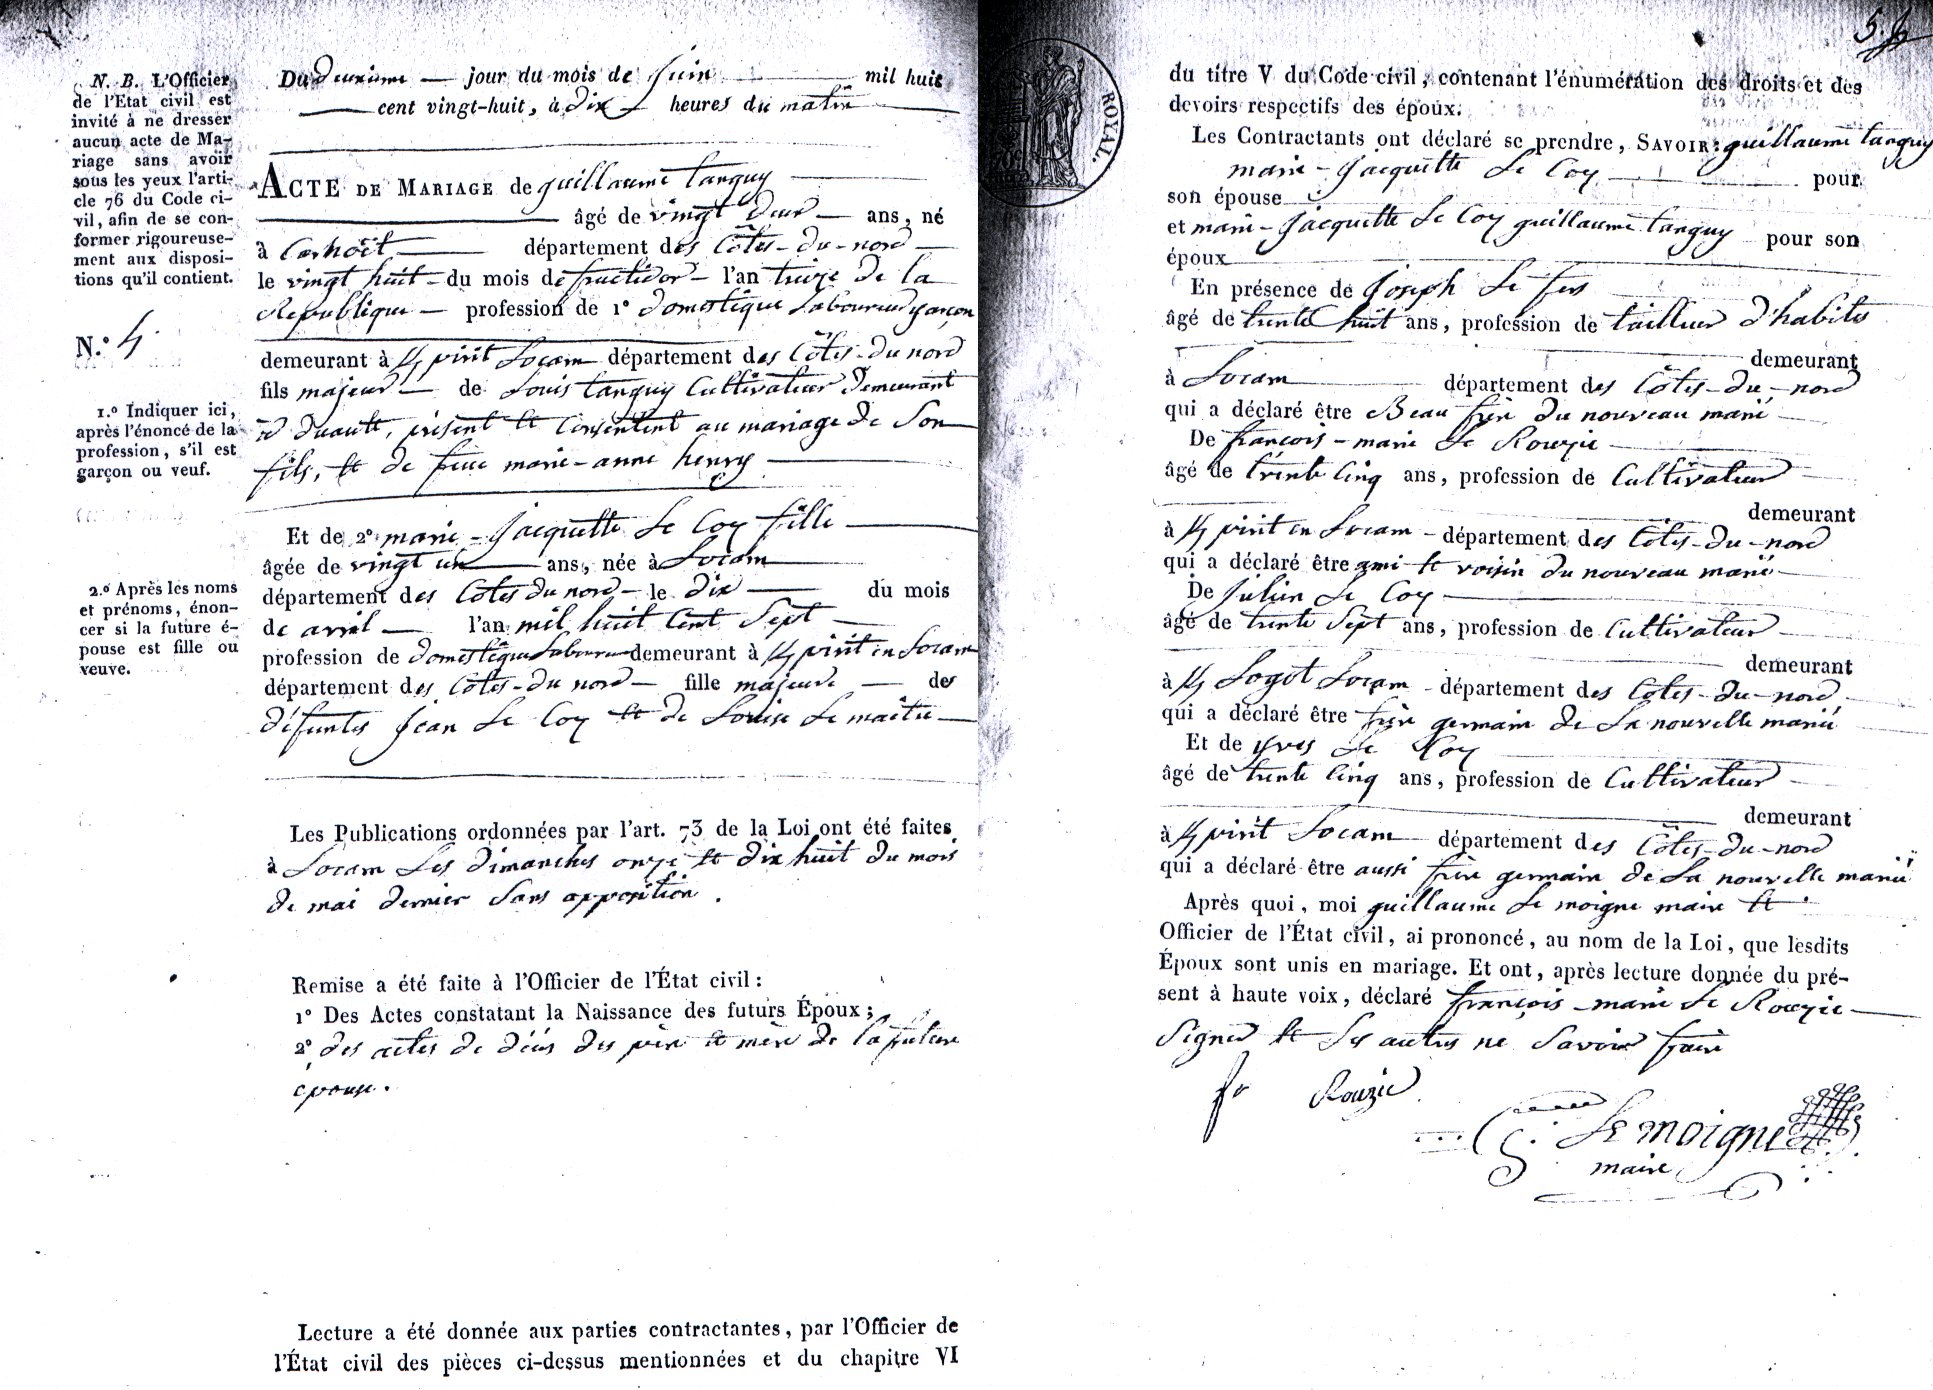 N. B. L'Officier
de l'Etat civil est
invité à ne dresser
aucun acte de Ma-
riage sans avoir
sous les yeux l'arti-
cle 76 du Code ci-
vil, afin de se con-
former rigoureuse-
ment aux disposi-
tions qu'il contient.
N.º 4
1.º Indiquer ici,
après l'énoncé de la
profession, s'il est
garçon ou veuf.
2.º Après les noms
et prénoms, énon-
cer si la future é-
pouse est fille ou
veuve.
Du deuxième jour du mois de juin mil huit
cent vingt-huit, à dix heures du matin
ACTE DE MARIAGE de guillaume tanguy
âgé de vingt deux ans, né
à Carhoët département des Côtes-du-nord
le vingt huit du mois de fructidor l'an treize de la
Republique profession de 1º domestique Laboureur garçon
demeurant à Locarn département des Côtes-du nord
fils majeur de Louis tanguy Cultivateur demeurant
à duault, présent et Consentent au mariage de Son
fils, et de feue marie-anne henry
Et de 2º marie-jacquette Le Coy fille
âgée de vingt un ans, née à Locarn
département des Côtes du nord le dix du mois
de avril l'an mil huit Cent Sept
profession de domestique demeurant à en Locarn
département des Côtes-du nord fille majeure des
défuntes jean Le Coy et de Louise Le maitre
Les Publications ordonnées par l'art. 73 de la Loi ont été faites
à Locarn Les dimanches onze et dix huit du mois
de mai dernier Sans opposition.
Remise a été faite à l'Officier de l'État civil :
1º Des Actes constatant la Naissance des futurs Époux ;
2º des actes de décès des père et mère de la future
épouse.
Lecture a été donnée aux parties contractantes, par l'Officier de
l'État civil des pièces ci-dessus mentionnées et du chapitre VI
ROYAL.
5.
du titre V du Code civil, contenant l'énumération des droits et des
devoirs respectifs des époux.
Les Contractants ont déclaré se prendre, SAVOIR : guillaume tanguy
marie-jacquette Le Coy pour
son épouse
et marie-jacquette Le Coy guillaume tanguy pour son
époux
En présence de joseph Le fur
âgé de trente huit ans, profession de tailleur d'habits
demeurant
à Locarn département des Côtes-du-nord
qui a déclaré être Beau frère du nouveau marié
De françois-marie Le Rouzic
âgé de trente Cinq ans, profession de Cultivateur
demeurant
à en Locarn département des Côtes-du-nord
qui a déclaré être ami et voisin du nouveau marié
De julien Le Coy
âgé de trente Sept ans, profession de Cultivateur
demeurant
à Locarn département des Côtes-du-nord
qui a déclaré être frère germain de La nouvelle marié
Et de yves Le Coy
âgé de trente Cinq ans, profession de Cultivateur
demeurant
à Locarn département des Côtes-du-nord
qui a déclaré être aussi frère germain de La nouvelle marié
Après quoi, moi guillaume Le moigne maire et
Officier de l'État civil, ai prononcé, au nom de la Loi, que lesdits
Époux sont unis en mariage. Et ont, après lecture donnée du pré-
sent à haute voix, déclaré françois-marie Le Rouzic
Signer et Les autres ne Savoir faire
fr Rouzic
G. Le moigne
maire